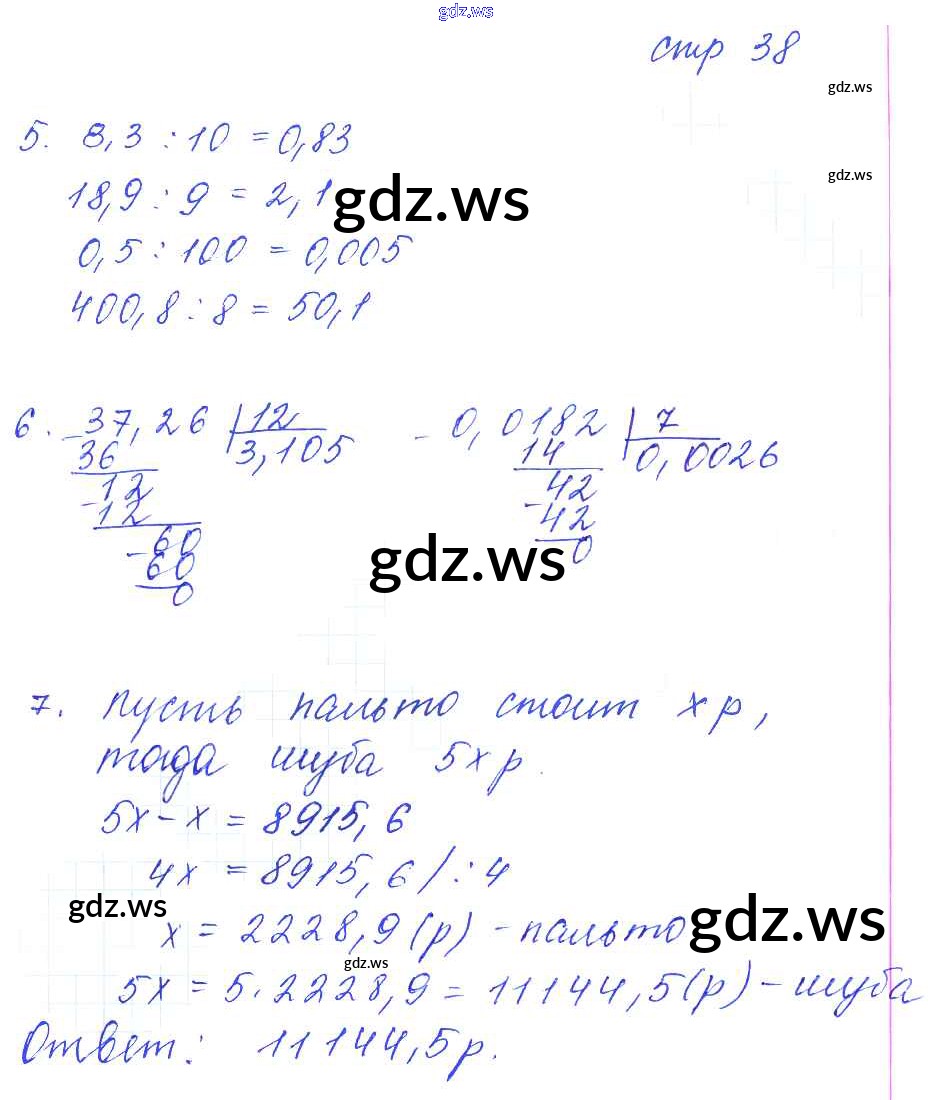 gdz.ws
стр 38
gdz.ws
5. 8,3 : 10 = 0,83
gdz.ws
18,9 : 9 = 2,1
gdz.ws
0,5 : 100 = 0,005
400,8 : 8 = 50,1
6. 37,26 12 - 0,0182 7
36 3,105 14 0,0026
12 42
- 12 - 42
60 0
- 60
0
gdz.ws
7. Пусть пальто стоит x р,
тогда шуба 5x р.
5x - x = 8915,6
4x = 8915,6 / : 4
gdz.ws
x = 2228,9 (р) - пальто
gdz.ws
gdz.ws
5x = 5 . 2228,9 = 11144,5 (р) - шуба
Ответ: 11144,5 р.